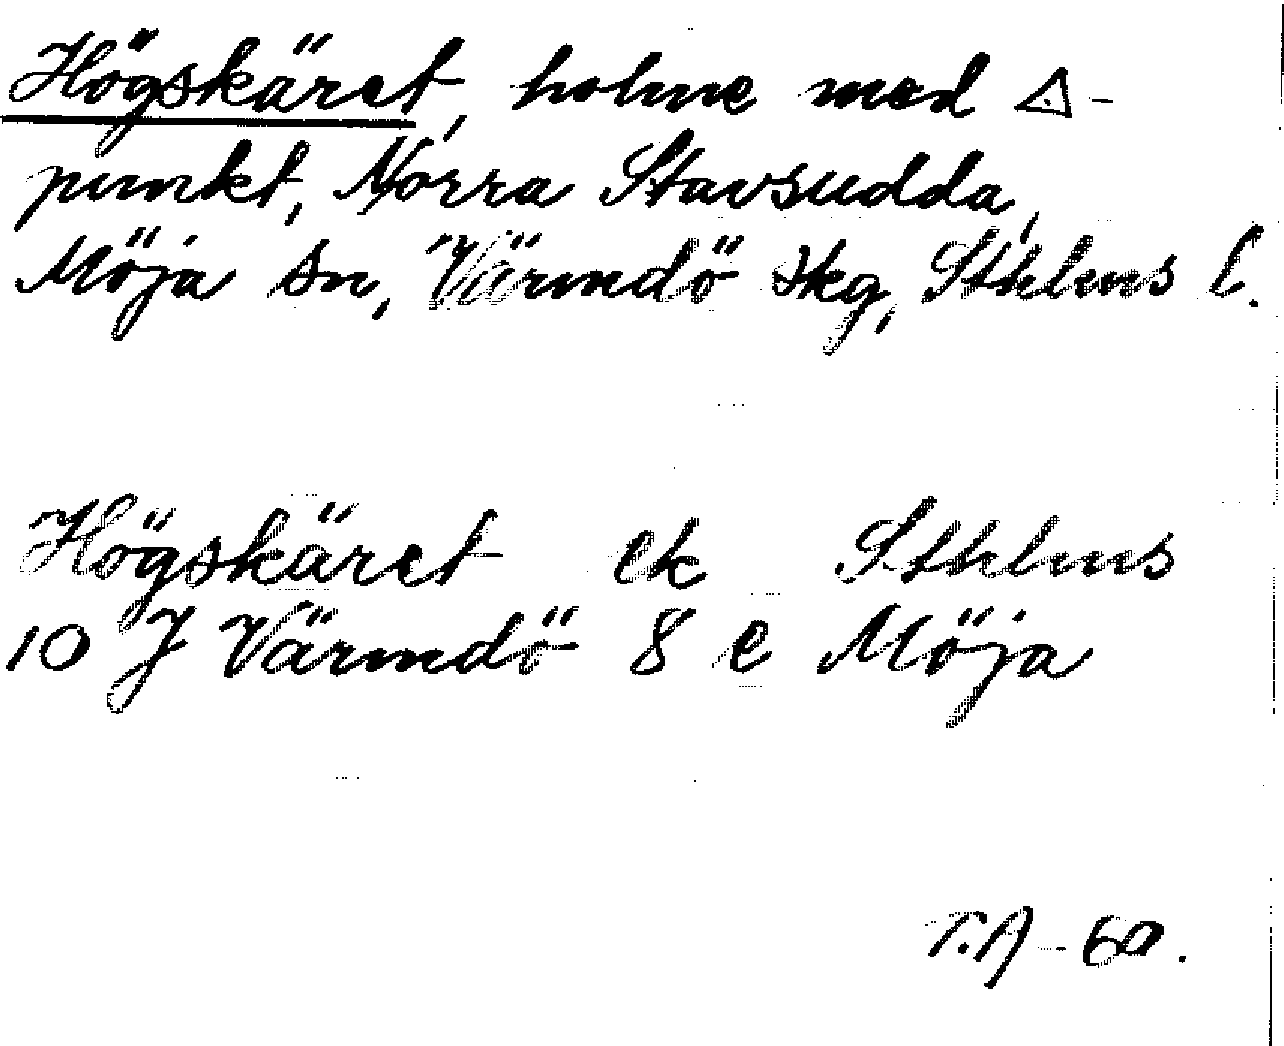 Högskäret, holme med △-
punkt, Norra Stavsudda,
Möja sn, Värmdö skg, Sthlms l.
Högskäret ek Sthlms
10 J Värmdö 8 e Möja
T.A - 60.